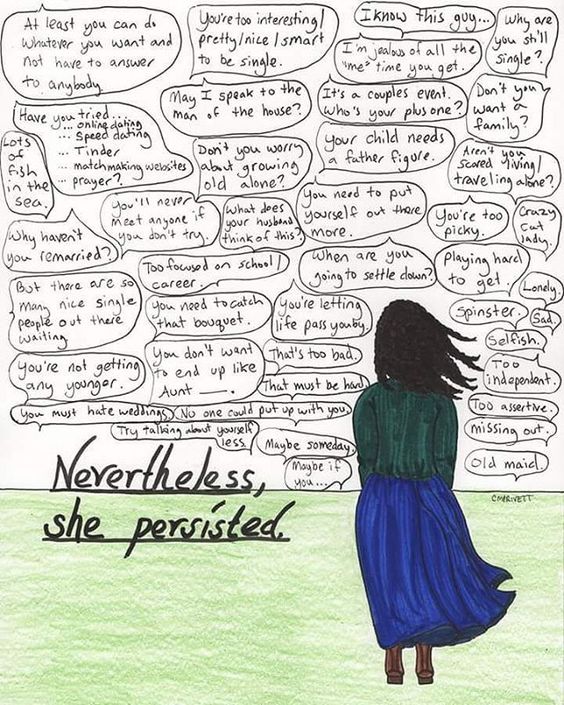 At least you can do
whatever you want and
not have to answer
to anybody.
You're too interesting/
pretty/nice/smart
to be single.
I know this guy...
Why are
you still
single?
I'm jealous of all the
"me" time you get.
Have you tried...
... online dating
... Speed dating
... Tinder
... matchmaking websites
... prayer?
May I speak to the
man of the house?
It's a couples event.
Who's your plus one?
Don't you
want a
family?
Lots
of
fish
in the
sea.
Don't you worry
about growing
old alone?
Your child needs
a father figure.
Aren't you
scared living/
traveling alone?
You'll never
meet anyone if
you don't try.
What does
your husband
think of this?
You need to put
yourself out there
more.
You're too
picky.
Crazy
cat
lady.
Why haven't
you remarried?
Too focused on school/
career.
When are you
going to settle down?
Playing hard
to get.
Lonely.
But there are so
many nice single
people out there
waiting.
You need to catch
that bouquet.
You're letting
life pass you by.
Spinster.
Sad.
Selfish.
You're not getting
any younger.
You don't want
to end up like
Aunt ___.
That's too bad.
That must be hard.
Too
independent.
You must hate weddings.
No one could put up with you.
Too assertive.
Try talking about yourself
less.
Maybe someday.
missing out.
Maybe if
you...
Old maid.
Nevertheless,
she persisted.
CMARIVETT